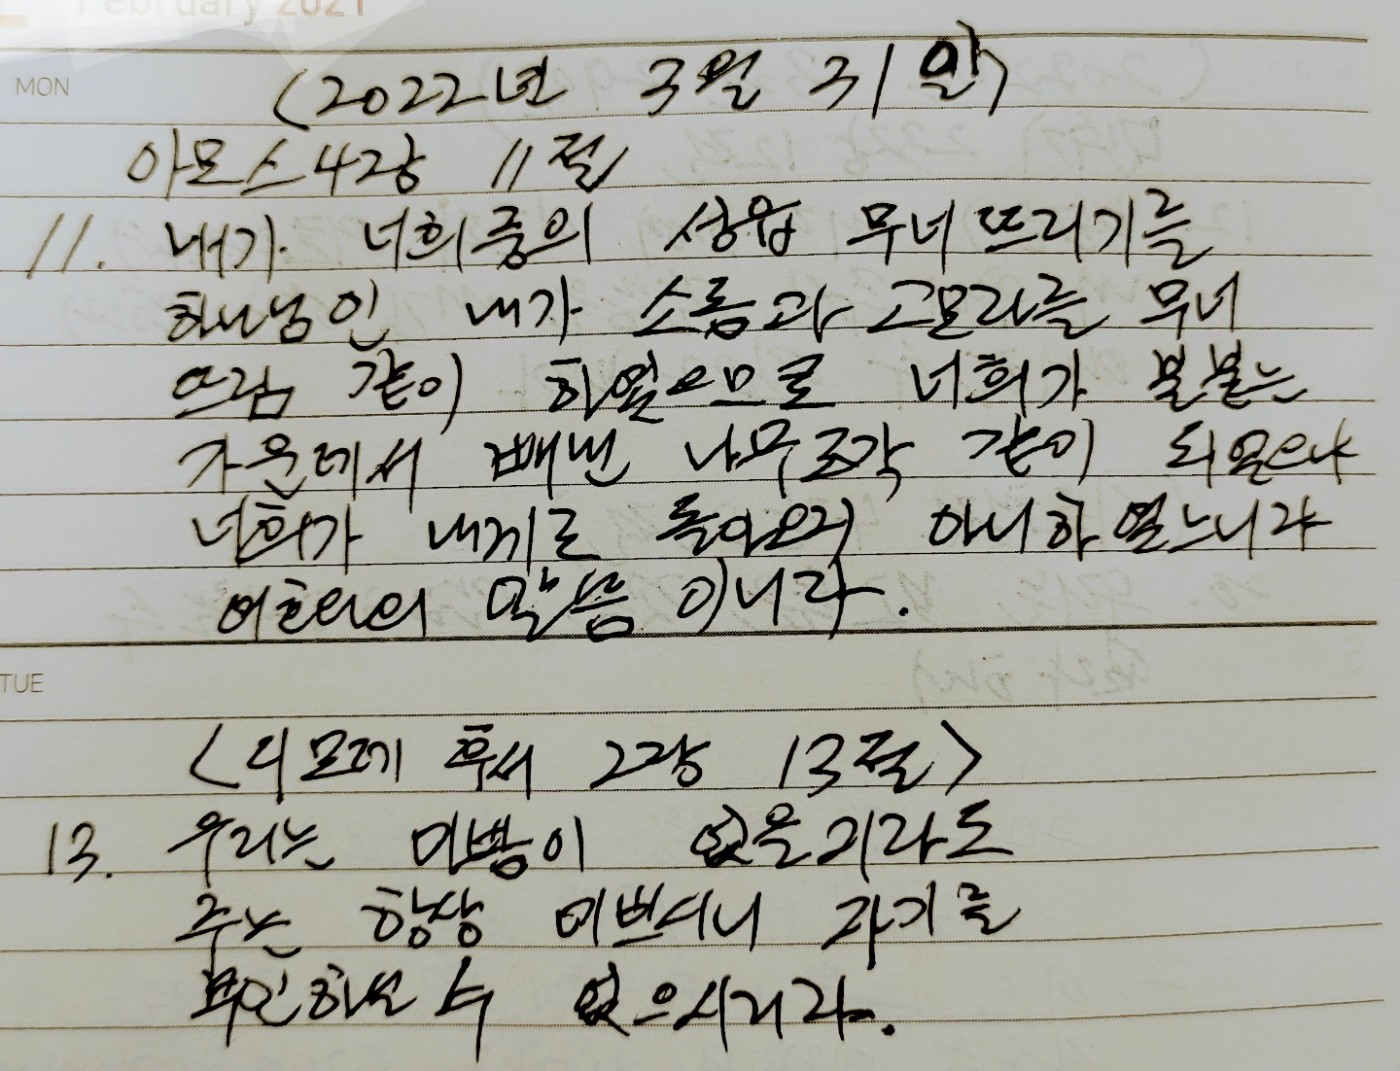 February 2021
MON
(2022년 3월 31일)
아모스4장 11절
11. 내가 너희중의 성읍 무너뜨리기를
하나님인 내가 소돔과 고모라를 무너
뜨림 같이 하였으므로 너희가 불붙는
가운데서 빼낸 나무조각 같이 되었으나
너희가 내게로 돌아오지 아니하였느니라
여호와의 말씀이니라.
TUE
<디모데 후서 2장 13절>
13. 우리는 미쁨이 없을지라도
주는 항상 미쁘시니 자기를
부인하실 수 없으시리라.